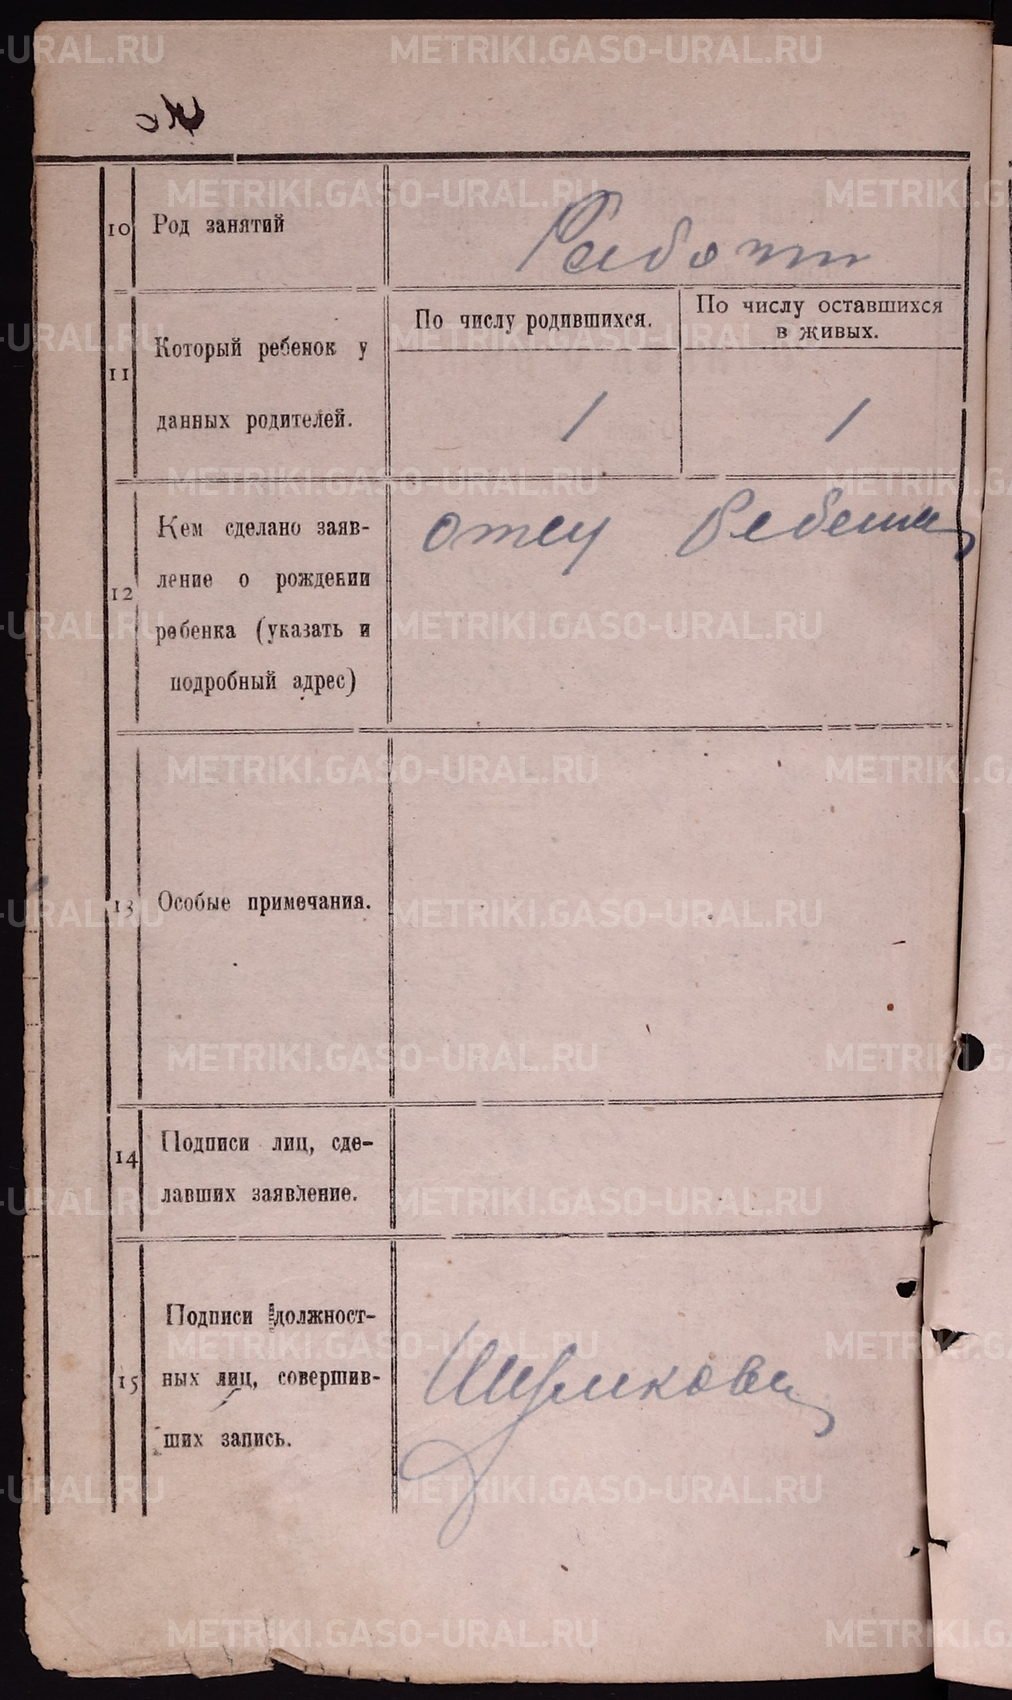 10 Род занятий
Работн
11 Который ребенок у
данных родителей.
По числу родившихся.
По числу оставшихся
в живых.
1
1
12 Кем сделано заяв-
ление о рождении
ребенка (указать и
подробный адрес)
отец ребенка
13 Особые примечания.
14 Подписи лиц, сде-
лавших заявление.
15 Подписи должност-
ных лиц, совершив-
ших запись.
METRIKI.GASO-URAL.RU